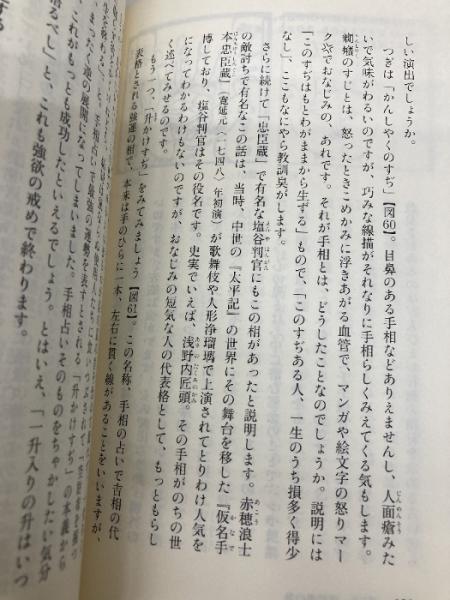 しい演出でしょうか。
つぎは「かんしやくのすぢ」【図60】。目鼻のある手相などありえませんし、人面瘡みた
いで気味がわるいのですが、巧みな線描がそれなりに手相らしくみえてくる気もします。
癇癪のすじとは、怒ったときこめかみに浮きあがる血管で、マンガや絵文字の怒りマー
ク💢でおなじみの、あれです。それが手相とは、どうしたことなのでしょうか。説明には
「このすぢはもとわがままから生ずる」もので、「このすぢある人、一生のうち損多く得少
なし」、ここもなにやら教訓臭がします。
さらに続けて『忠臣蔵』で有名な塩谷判官にもこの相があったと説明します。赤穂浪士
の敵討ちで有名なこの話は、当時、中世の『太平記』の世界にその舞台を移した『仮名手
本忠臣蔵』（寛延元（一七四八）年初演）が歌舞伎や人形浄瑠璃で上演されてとりわけ人気を
博しており、塩谷判官はその役名です。史実でいえば、浅野内匠頭。その手相がのちの世
になってわかるわけもないのですが、おなじみの短気な人の代表格として、もっともらし
く述べてみせるのです。
もう一つ、「升かけすぢ」をみてみましょう【図61】。この名称、手相の占いで吉相の代
表格とされる強運の相で、本来は手のひらに一本、左右に貫く線があることをいいますが、
手相占いで最強の運勢を表すとされる「升かけすぢ」の本義から
まったく逆の展開になってしまいました。手相占いそのものをちゃかしたい気分
これがもっとも成功したといえるでしょう。とはいえ、「一升入りの升はいつ
るべし」と、これも強欲の戒めで終わります。